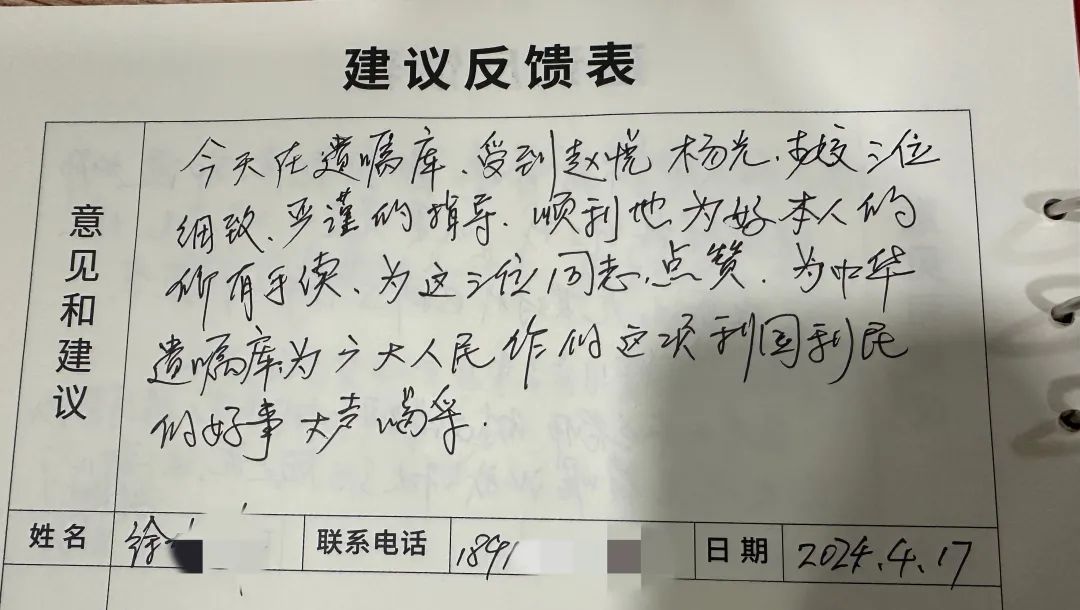 建议反馈表
意见和建议
今天在遗嘱库、受到赵悦 杨光、三位
细致、严谨的指导、顺利地为好本人的
所有手续、为这三位同志点赞、为中华
遗嘱库为广大人民作的这项利国利民
的好事大声喝乎.
姓名 徐 联系电话 1891 日期 2024.4.17